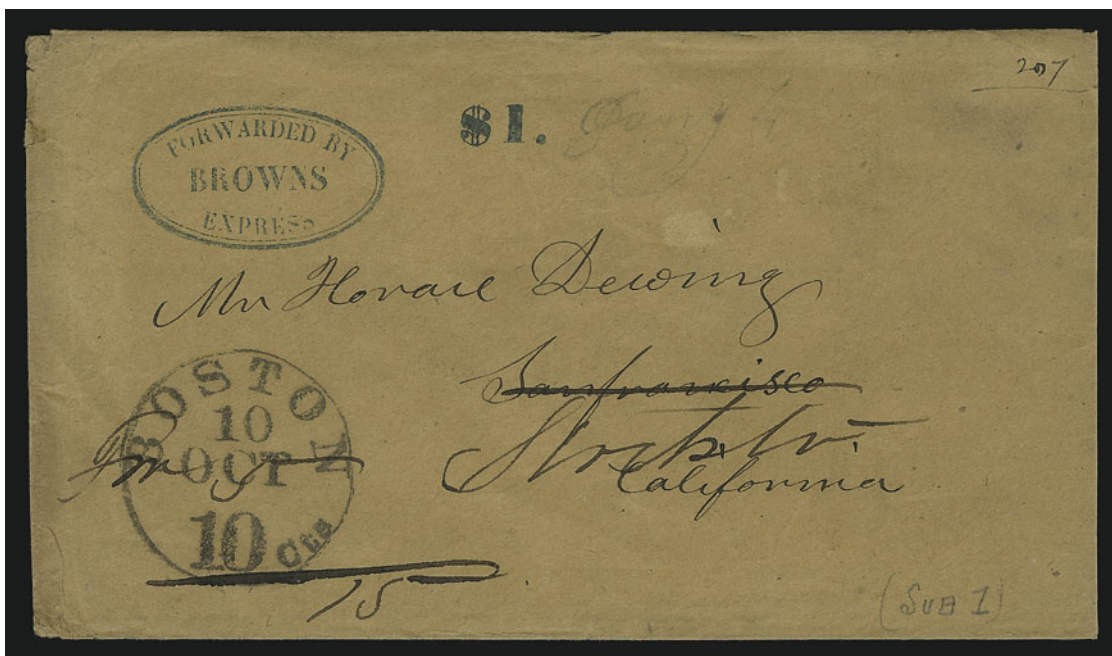 207
FORWARDED BY
BROWNS
EXPRESS
$1.
Mr Horace Dewing
Sanfrancisco
Stockton
California
BOSTON
10
OCT
10 Cts
15
(SUB 1)